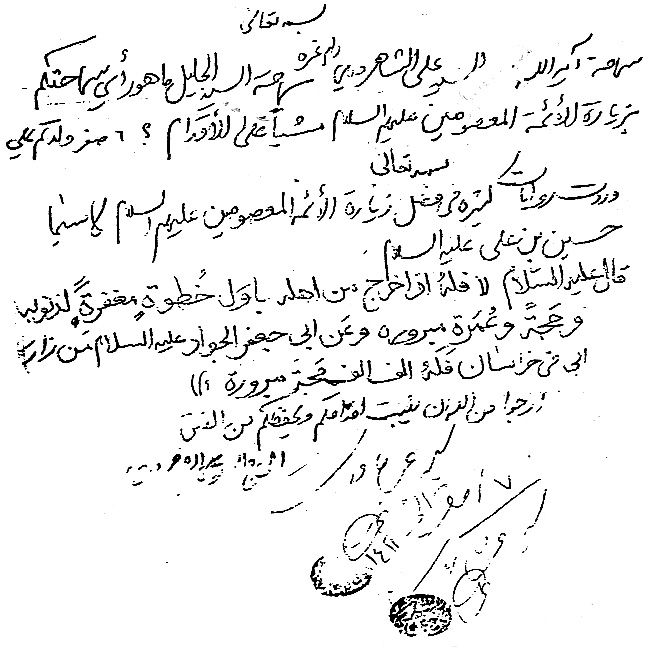 بسمه تعالى
سماحة آية الله السيد علي الشاهرودي دام عزه سماحة السيد الجليل ما هو رأي سماحتكم
بزيارة الأئمة المعصومين عليهم السلام مشياً على الأقدام ؟ ٦ صفر ولدكم علي
بسمه تعالى
وردت روايات كثيرة في فضل زيارة الأئمة المعصومين عليهم السلام لا سيما
حسين بن علي عليه السلام
قال عليه السلام فله اذا خرج من اهله باول خُطوةٍ مغفرةً لذنوبه
وحَجةً وعُمرَة مبروره وعَن ابي جعفر الجواد عليه السلام مَن زار
ابي في خراسان فَلَهُ الف الف حَجة مبرورة
أرجوا من الله ان يثبت اقدامكم ويحفظكم من الفتن
٧
١٤٢١